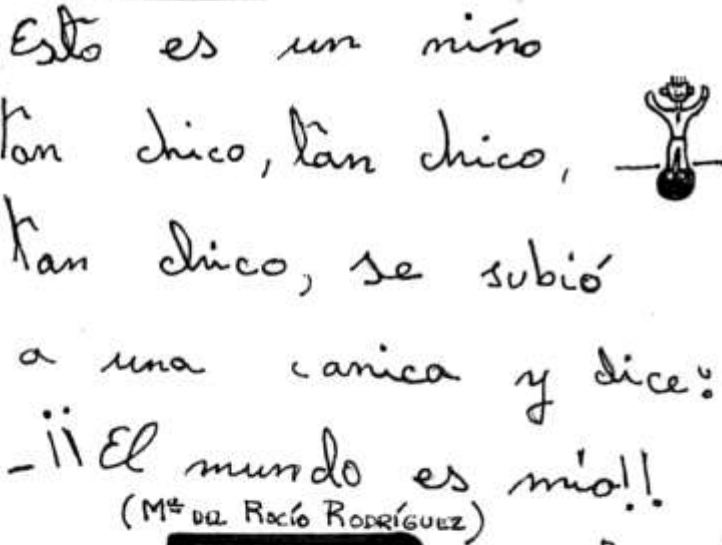 Esto es un niño
tan chico, tan chico,
tan chico, se subió
a una canica y dice:
-¡¡El mundo es mío!!
(Mª DEL ROCÍO RODRÍGUEZ)